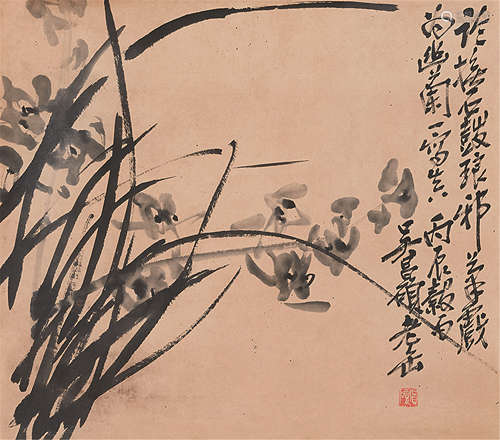 石鼓琅邪筆戲
為幽蘭一寫真丙辰穀雨
吳昌碩老缶